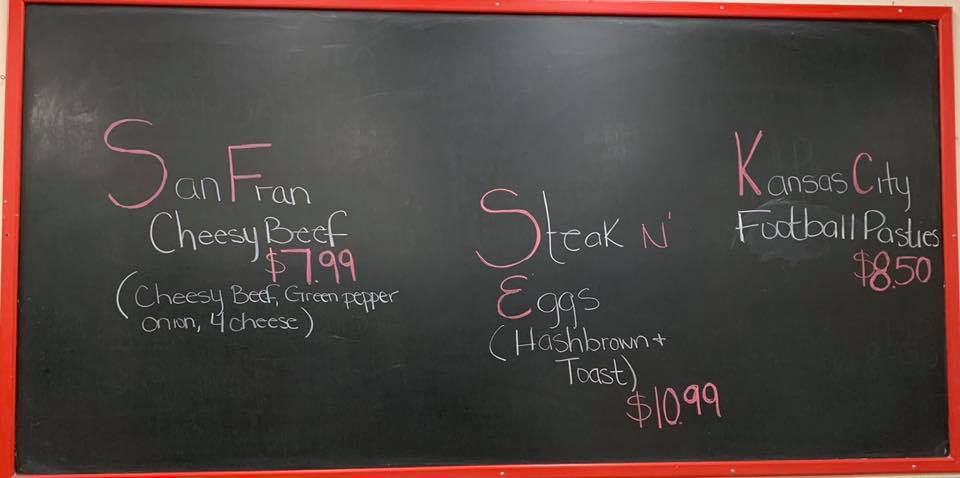 San Fran
Cheesy Beef
$7.99
(Cheesy Beef, Green pepper
onion, 4 cheese)
Steak N'
Eggs
(Hashbrown +
Toast)
$10.99
Kansas City
Football Pasties
$8.50